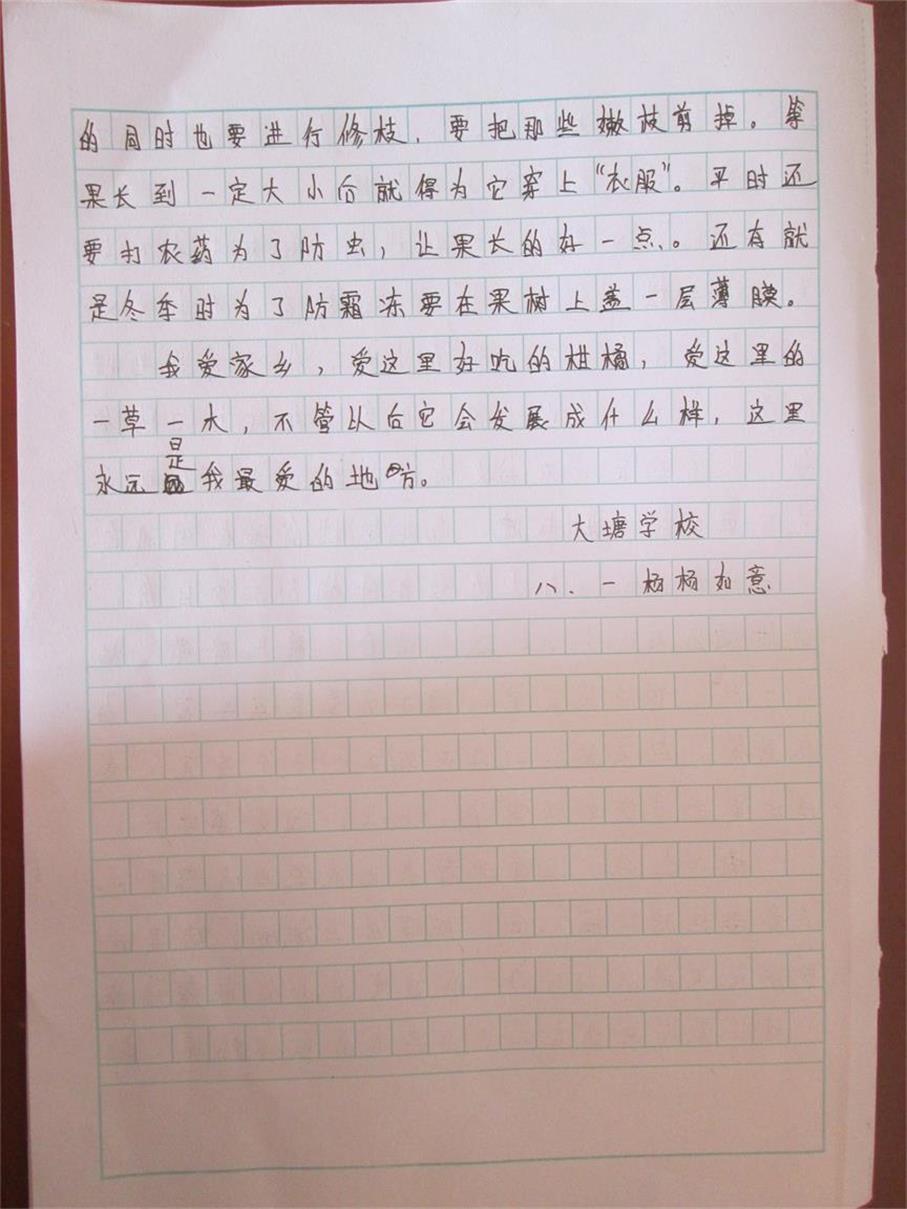 的同时也要进行修枝，要把那些嫩枝剪掉。等
果长到一定大小后就得为它穿上“衣服”。平时还
要打农药为了防虫，让果长的好一点。还有就
是冬季时为了防霜冻要在果树上盖一层薄膜。
我爱家乡，爱这里好吃的柑橘，爱这里的
一草一木，不管以后它会发展成什么样，这里
永远是我最爱的地方。
大塘学校
八、一杨杨如意